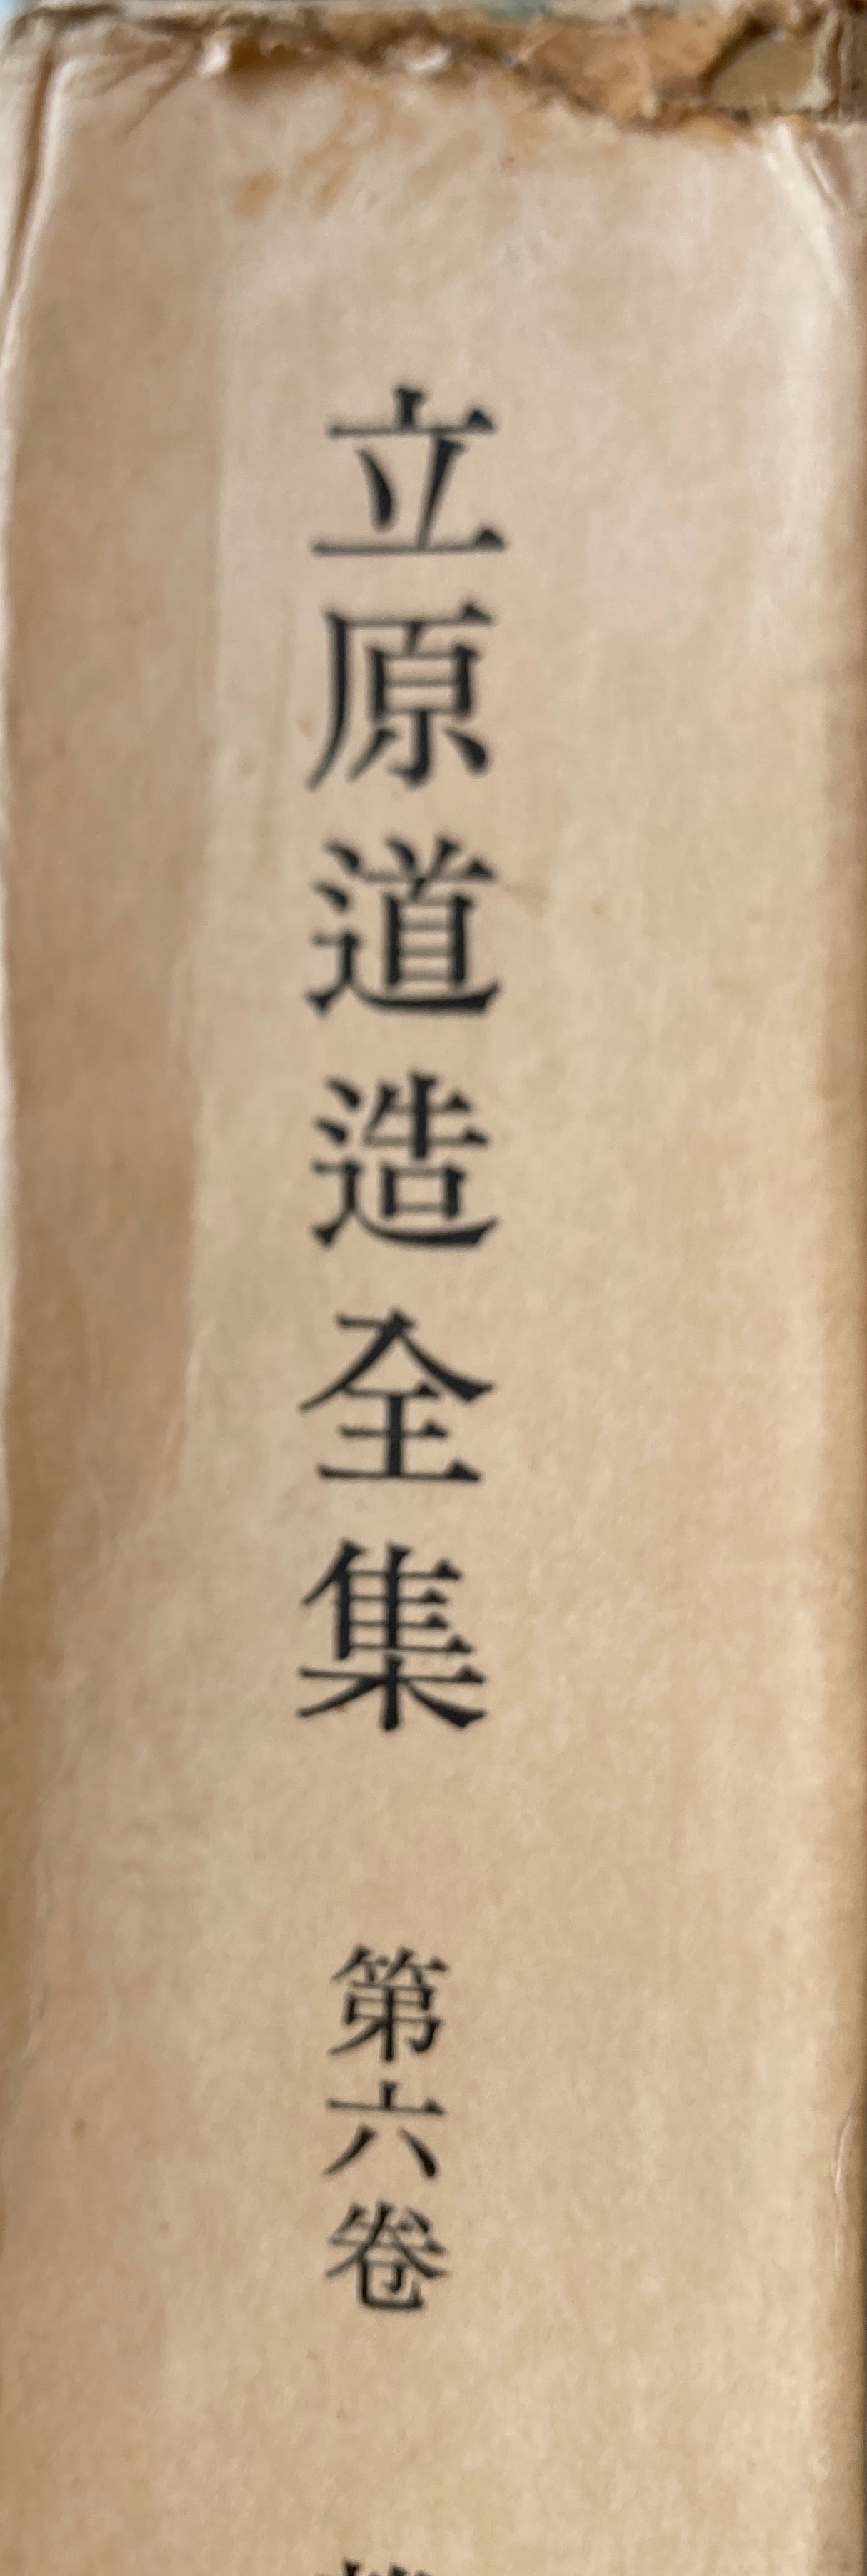 立原道造全集 第六卷